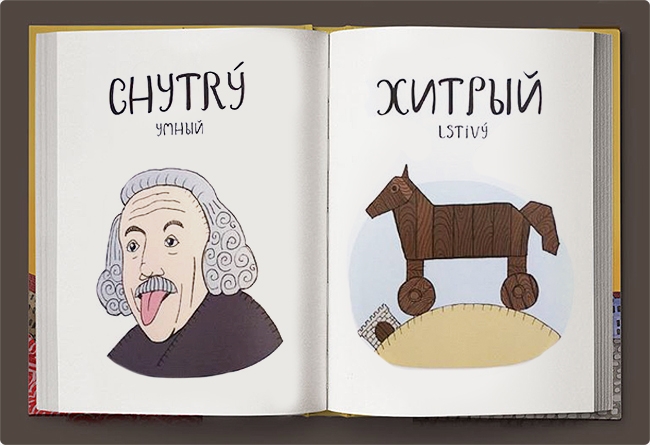 CHYTRÝ
УМНЫЙ
ХИТРЫЙ
LSTIVÝ